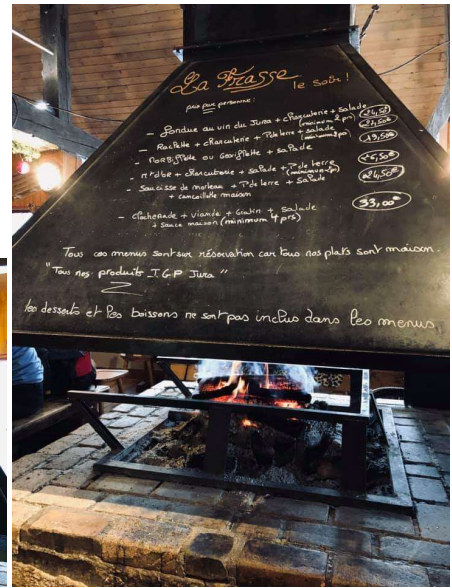 La Frasse le soir !
prix par personne :
- Fondue au vin du Jura + charcuterie + salade
(minimum 2 prs)
- Raclette + charcuterie + P de terre + salade
(minimum 2 prs)
- Morbiflette ou Georflette + salade 19,50€
+ charcuterie + salade + P. de terre
(minimum
- Saucisse de morteau + P. de terre + salade 24,50€
+ cancoillotte maison
- Clocherade + viande + Gratin + Salade 33,00€
+ sauce maison (minimum 4 prs)
Tous ces menus sont sur réservation car tous nos plats sont maison.
"Tous nos produits I.G.P Jura"
les desserts et les boissons ne sont pas inclus dans les menus